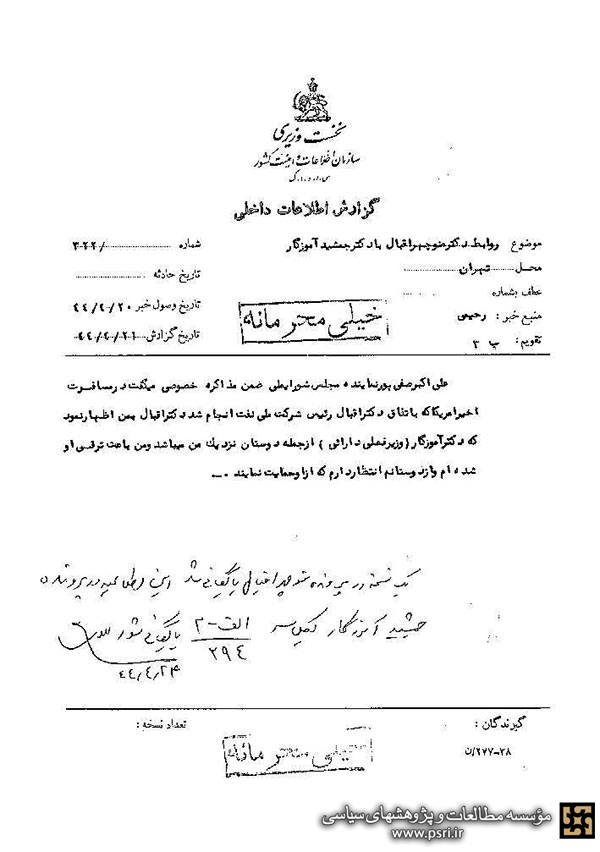 نخست وزیری
سازمان اطلاعات و امنیت کشور
س.ا.و.ا.ک
گزارش اطلاعات داخلی
موضوع روابط دکتر منوچهر اقبال با دکتر جمشید آموزگار
شماره ۳۰۲۲/
محل تهران
تاریخ حادثه
عطف بشماره
تاریخ وصول خبر ۴۴/۴/۲۰
منبع خبر : رحیمی
خیلی محرمانه
تاریخ گزارش ۴۴/۴/۲۱
تقویم : ب ۳
علی اکبر صفی پور نماینده مجلس شورایملی ضمن مذاکره خصوصی میگفت در مسافرت
اخیر امریکا که باتفاق دکتر اقبال رئیس شرکت ملی نفت انجام شد دکتر اقبال بمن اظهار نمود
که دکتر آموزگار (وزیر فعلی دارائی ) از جمله دوستان نزدیک من میباشد ومن باعث ترقی او
شده ام واز دوستانم انتظار دارم که از او حمایت نمایند .--
یک نسخه در پرونده منوچهر اقبال بایگانی شد این اطلاعیه در پرونده
جمشید آموزگار کلاسه الف-۲ / ۲۹۴ بایگانی شود
۴۴/۴/۲۴
گیرندگان :
تعداد نسخه :
۲۷۷-۳۸/ن
خیلی محرمانه
مؤسسه مطالعات و پژوهشهای سیاسی
www.psri.ir